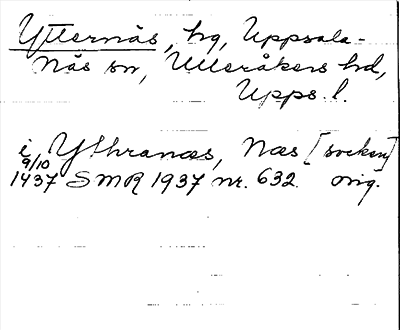 Ytternäs, by, Uppsala-
Näs sn, Ulleråkers hd,
Upps. l.
i Ythranæs, Næs [socken]
9/10
1437 SMR 1937 nr. 632 orig.